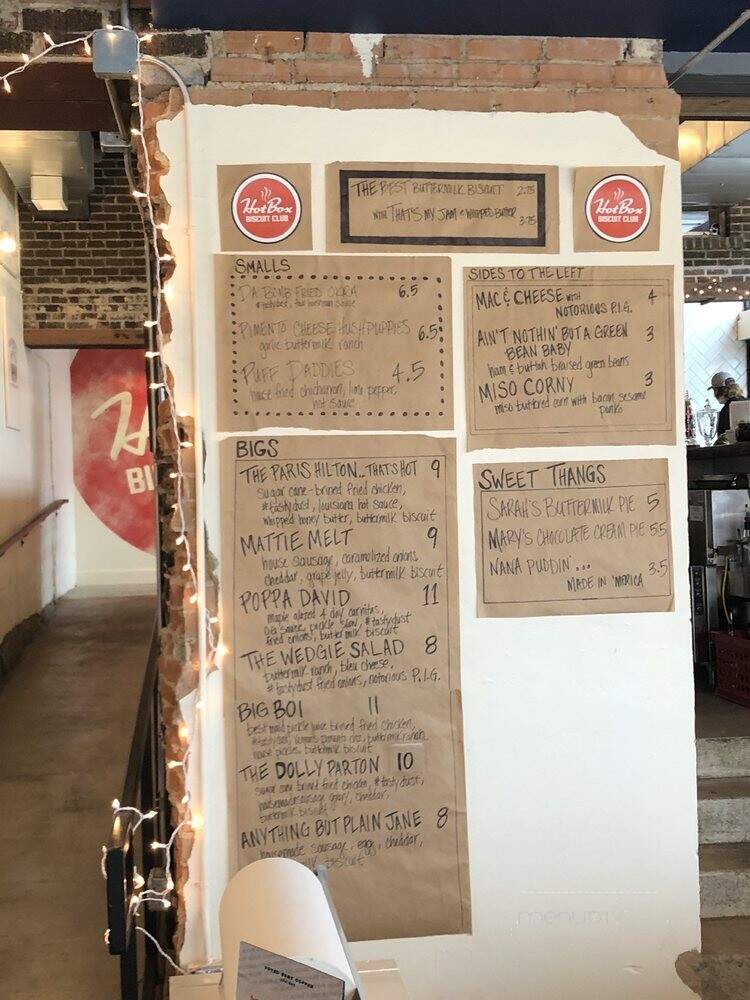 HotBox
BISCUIT CLUB
THE BEST BUTTERMILK BISCUIT 2.75
WITH THAT'S MY JAM & WHIPPED BUTTER 3.75
HotBox
BISCUIT CLUB
SMALLS
DA BOMB FRIED OKRA 6.5
PIMENTO CHEESE HUSHPUPPIES 6.5
garlic buttermilk ranch
PUFF DADDIES 4.5
house fried chicharron, lime pepper,
hot sauce
SIDES TO THE LEFT
MAC & CHEESE WITH 4
NOTORIOUS P.I.G.
AIN'T NOTHIN' BUT A GREEN 3
BEAN BABY
ham & buttah braised green beans
MISO CORNY 3
miso buttered corn with bacon, sesame
panko
BIGS
THE PARIS HILTON...THAT'S HOT 9
sugar cane-brined fried chicken,
#tastydust, louisiana hot sauce,
whipped honey butter, buttermilk biscuit
MATTIE MELT 9
house sausage, caramelized onions
cheddar, grape jelly, buttermilk biscuit
POPPA DAVID 11
maple glazed 4 day carnitas,
sauce, pickle slaw, #tastydust
fried onions, buttermilk biscuit
THE WEDGIE SALAD 8
buttermilk ranch, bleu cheese,
#tastydust fried onions, notorious P.I.G.
BIG BOI 11
best maid pickle juice brined fried chicken,
buttermilk ranch
house pickles, buttermilk biscuit
THE DOLLY PARTON 10
sugar cane brined fried chicken, #tastydust,
housemade sausage gravy, cheddar,
buttermilk biscuit
ANYTHING BUT PLAIN JANE 8
housemade sausage, egg, cheddar,
biscuit
SWEET THANGS
SARAH'S BUTTERMILK PIE 5
MARY'S CHOCOLATE CREAM PIE 5.5
NANA PUDDIN'... 3.5
MADE IN 'MERICA
BI
VOTED BEST COFFEE